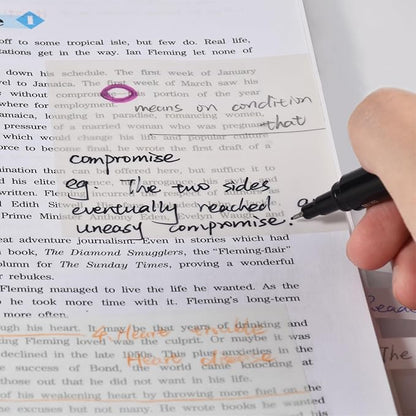 e 1
off to some tropical isle, but few do. Real life,
tations get in the way. Ian Fleming let none of
down his schedule. The first week of January
vel to Jamaica. The first week of March saw his
s without compromise this portion of the year
where for employment.
means on condition
that
amaica, lounging in paradise, romancing women,
pressure of a married woman who was pregnant
which would change his life and popular culture
rce to become final, he wrote the first draft of a
compromise
eg The two sides
eventually reached a
uneasy compromise.
ination than can
d his elite
written. Fleming
d Edith Sitwell
Prime Minister Anthony Eden, Evelyn Waugh, and
eat adventure journalism. Even in stories which had
book, The Diamond Smugglers, the "Fleming-flair"
olumn for The Sunday Times, proving a wonderful
r rebukes.
Fleming managed to live the life he wanted. As the
o he took more time with it. Fleming's long-term
more often.
ugh his heart. It that years of drinking and
4 Heart trouble
ing Fleming loved was the culprit. Or maybe it was
declined in the late 1950s. This plus anxieties in the
Heart disease
success of Bond, the world came knocking at
those out that he did not want in his life.
of his weakening heart by throwing more fuel on the
e excuses but not many. He wrote books he wanted
Reade
The